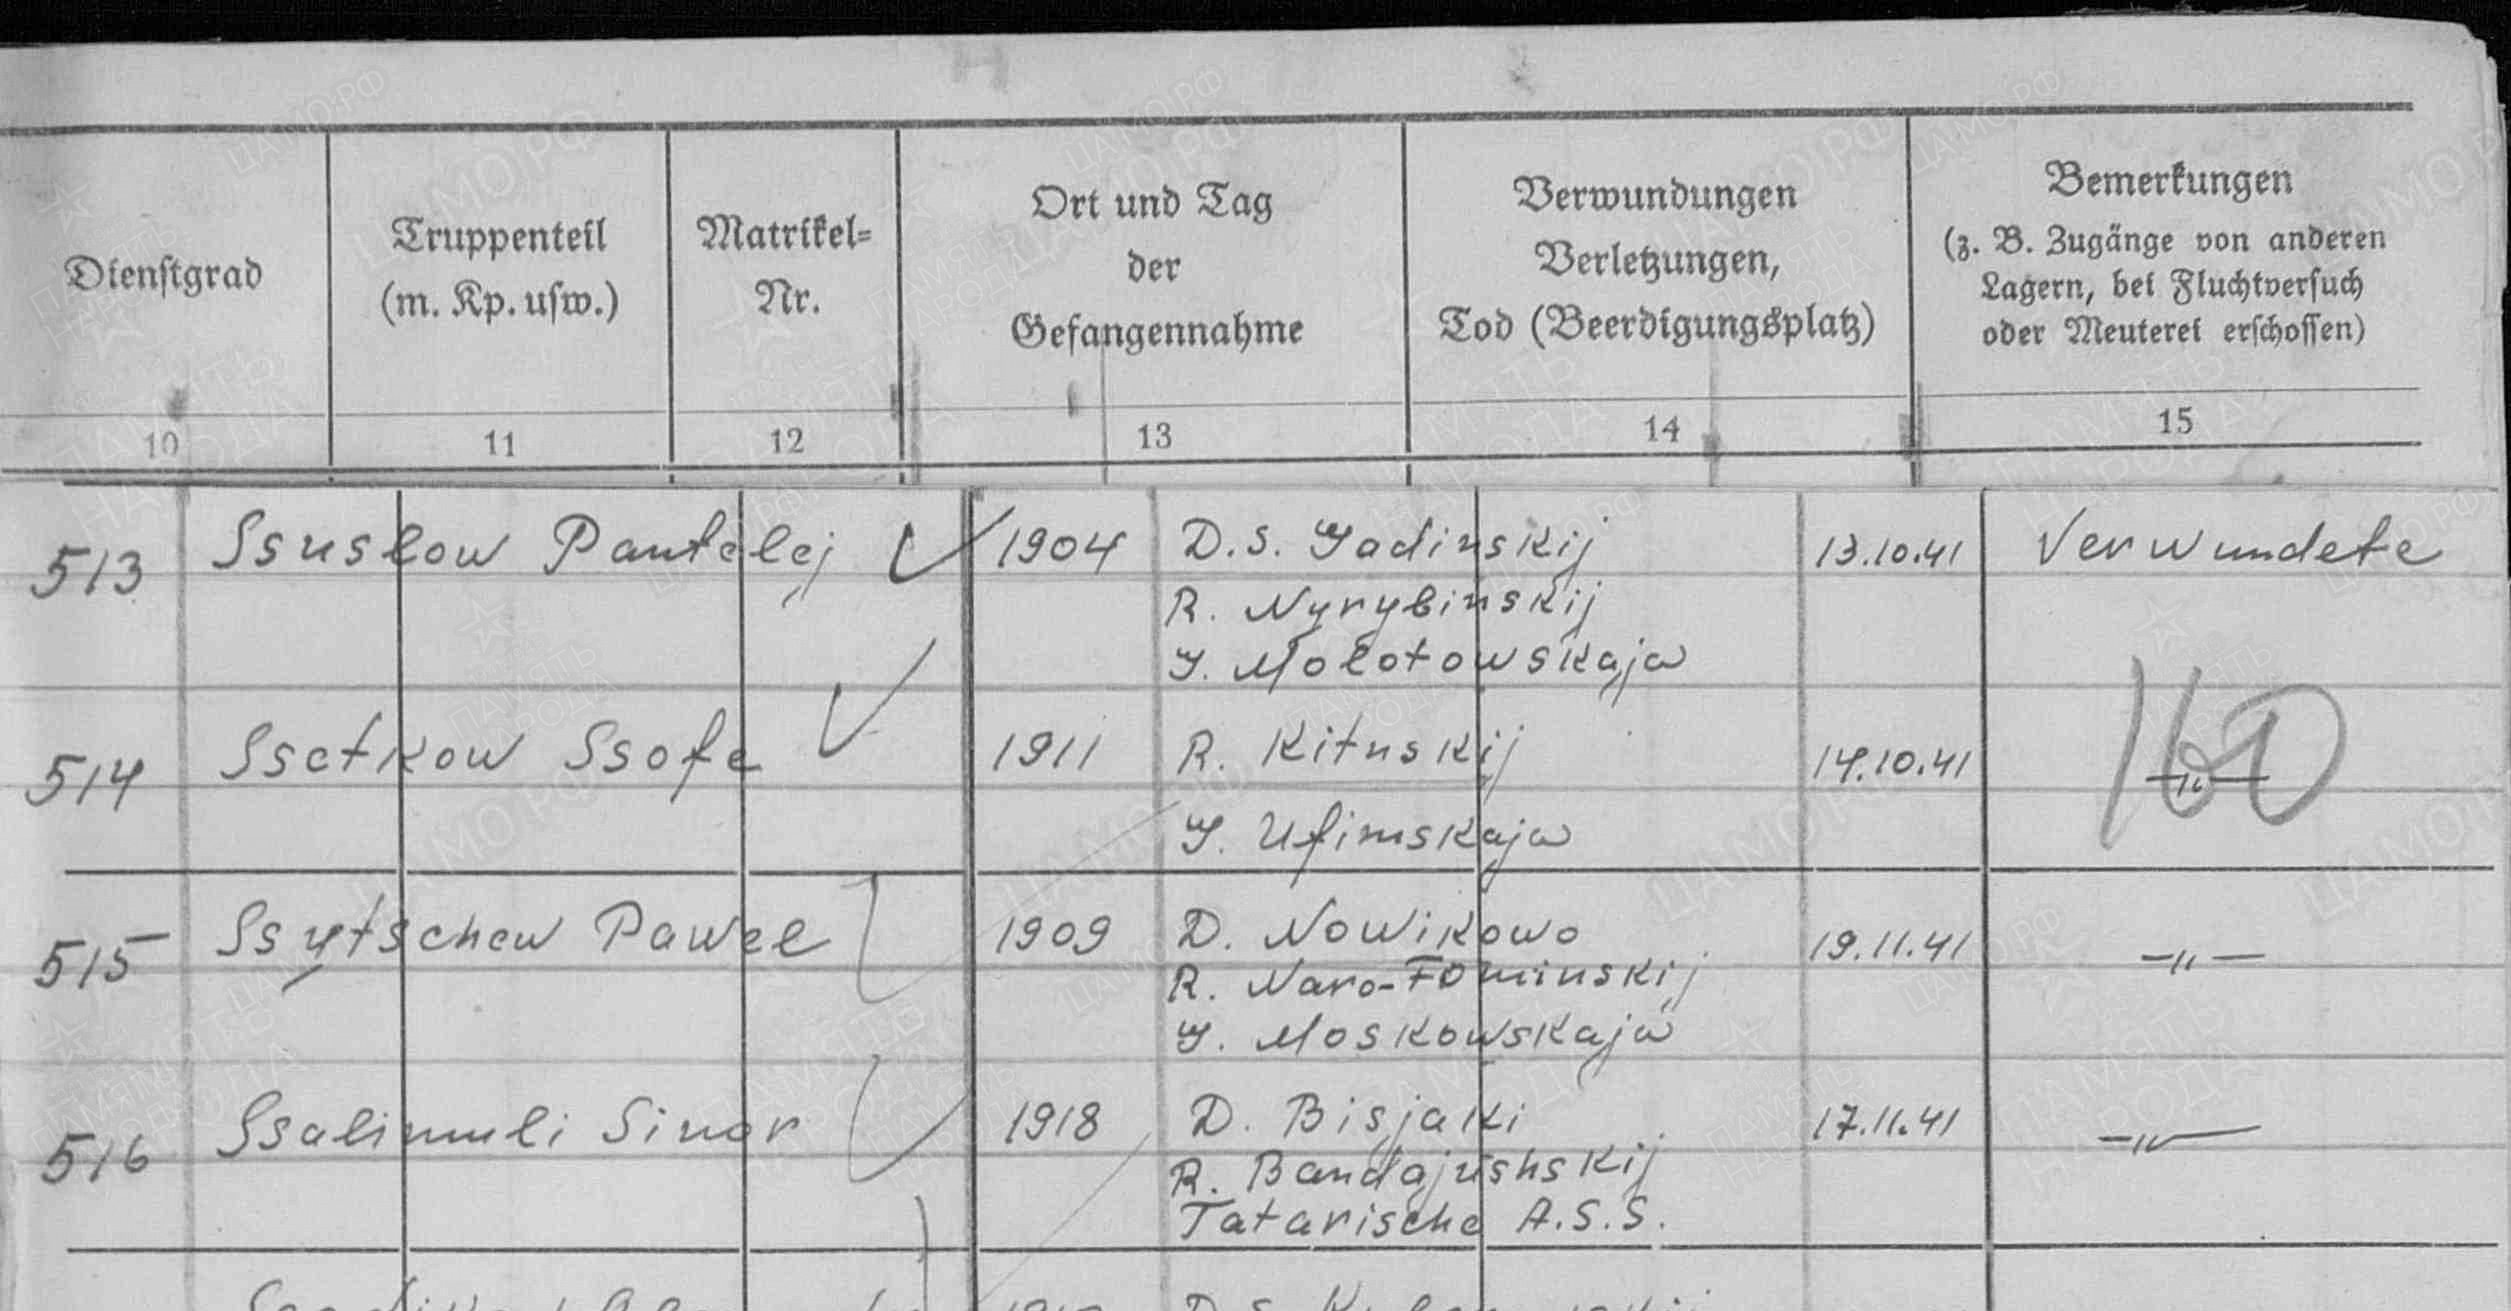 Dienstgrad
Truppenteil
(m. Kp. usw.)
Matrikel-
Nr.
Ort und Tag
der
Gefangennahme
Verwundungen
Verletzungen,
Tod (Beerdigungsplatz)
Bemerkungen
(z. B. Zugänge von anderen
Lagern, bei Fluchtversuch
oder Meuterei erschossen)
10 11 12 13 14 15
513 Ssuslow Pantelej 1904 D.S. Gadinskij 13.10.41 Verwundete
R. Nyrybinskij
G. Molotowskaja
514 Ssetkow Ssofe 1911 R. Kitnskij 14.10.41 -"-
G. Ufimskaja
515 Ssytschew Pawel 1909 D. Nowikowo 19.11.41 -"-
R. Naro-Fominskij
G. Moskowskaja
516 Ssalimuli Sinor 1918 D. Bisjaki 17.11.41 -"-
R. Bandajushskij
Tatarische A.S.S.